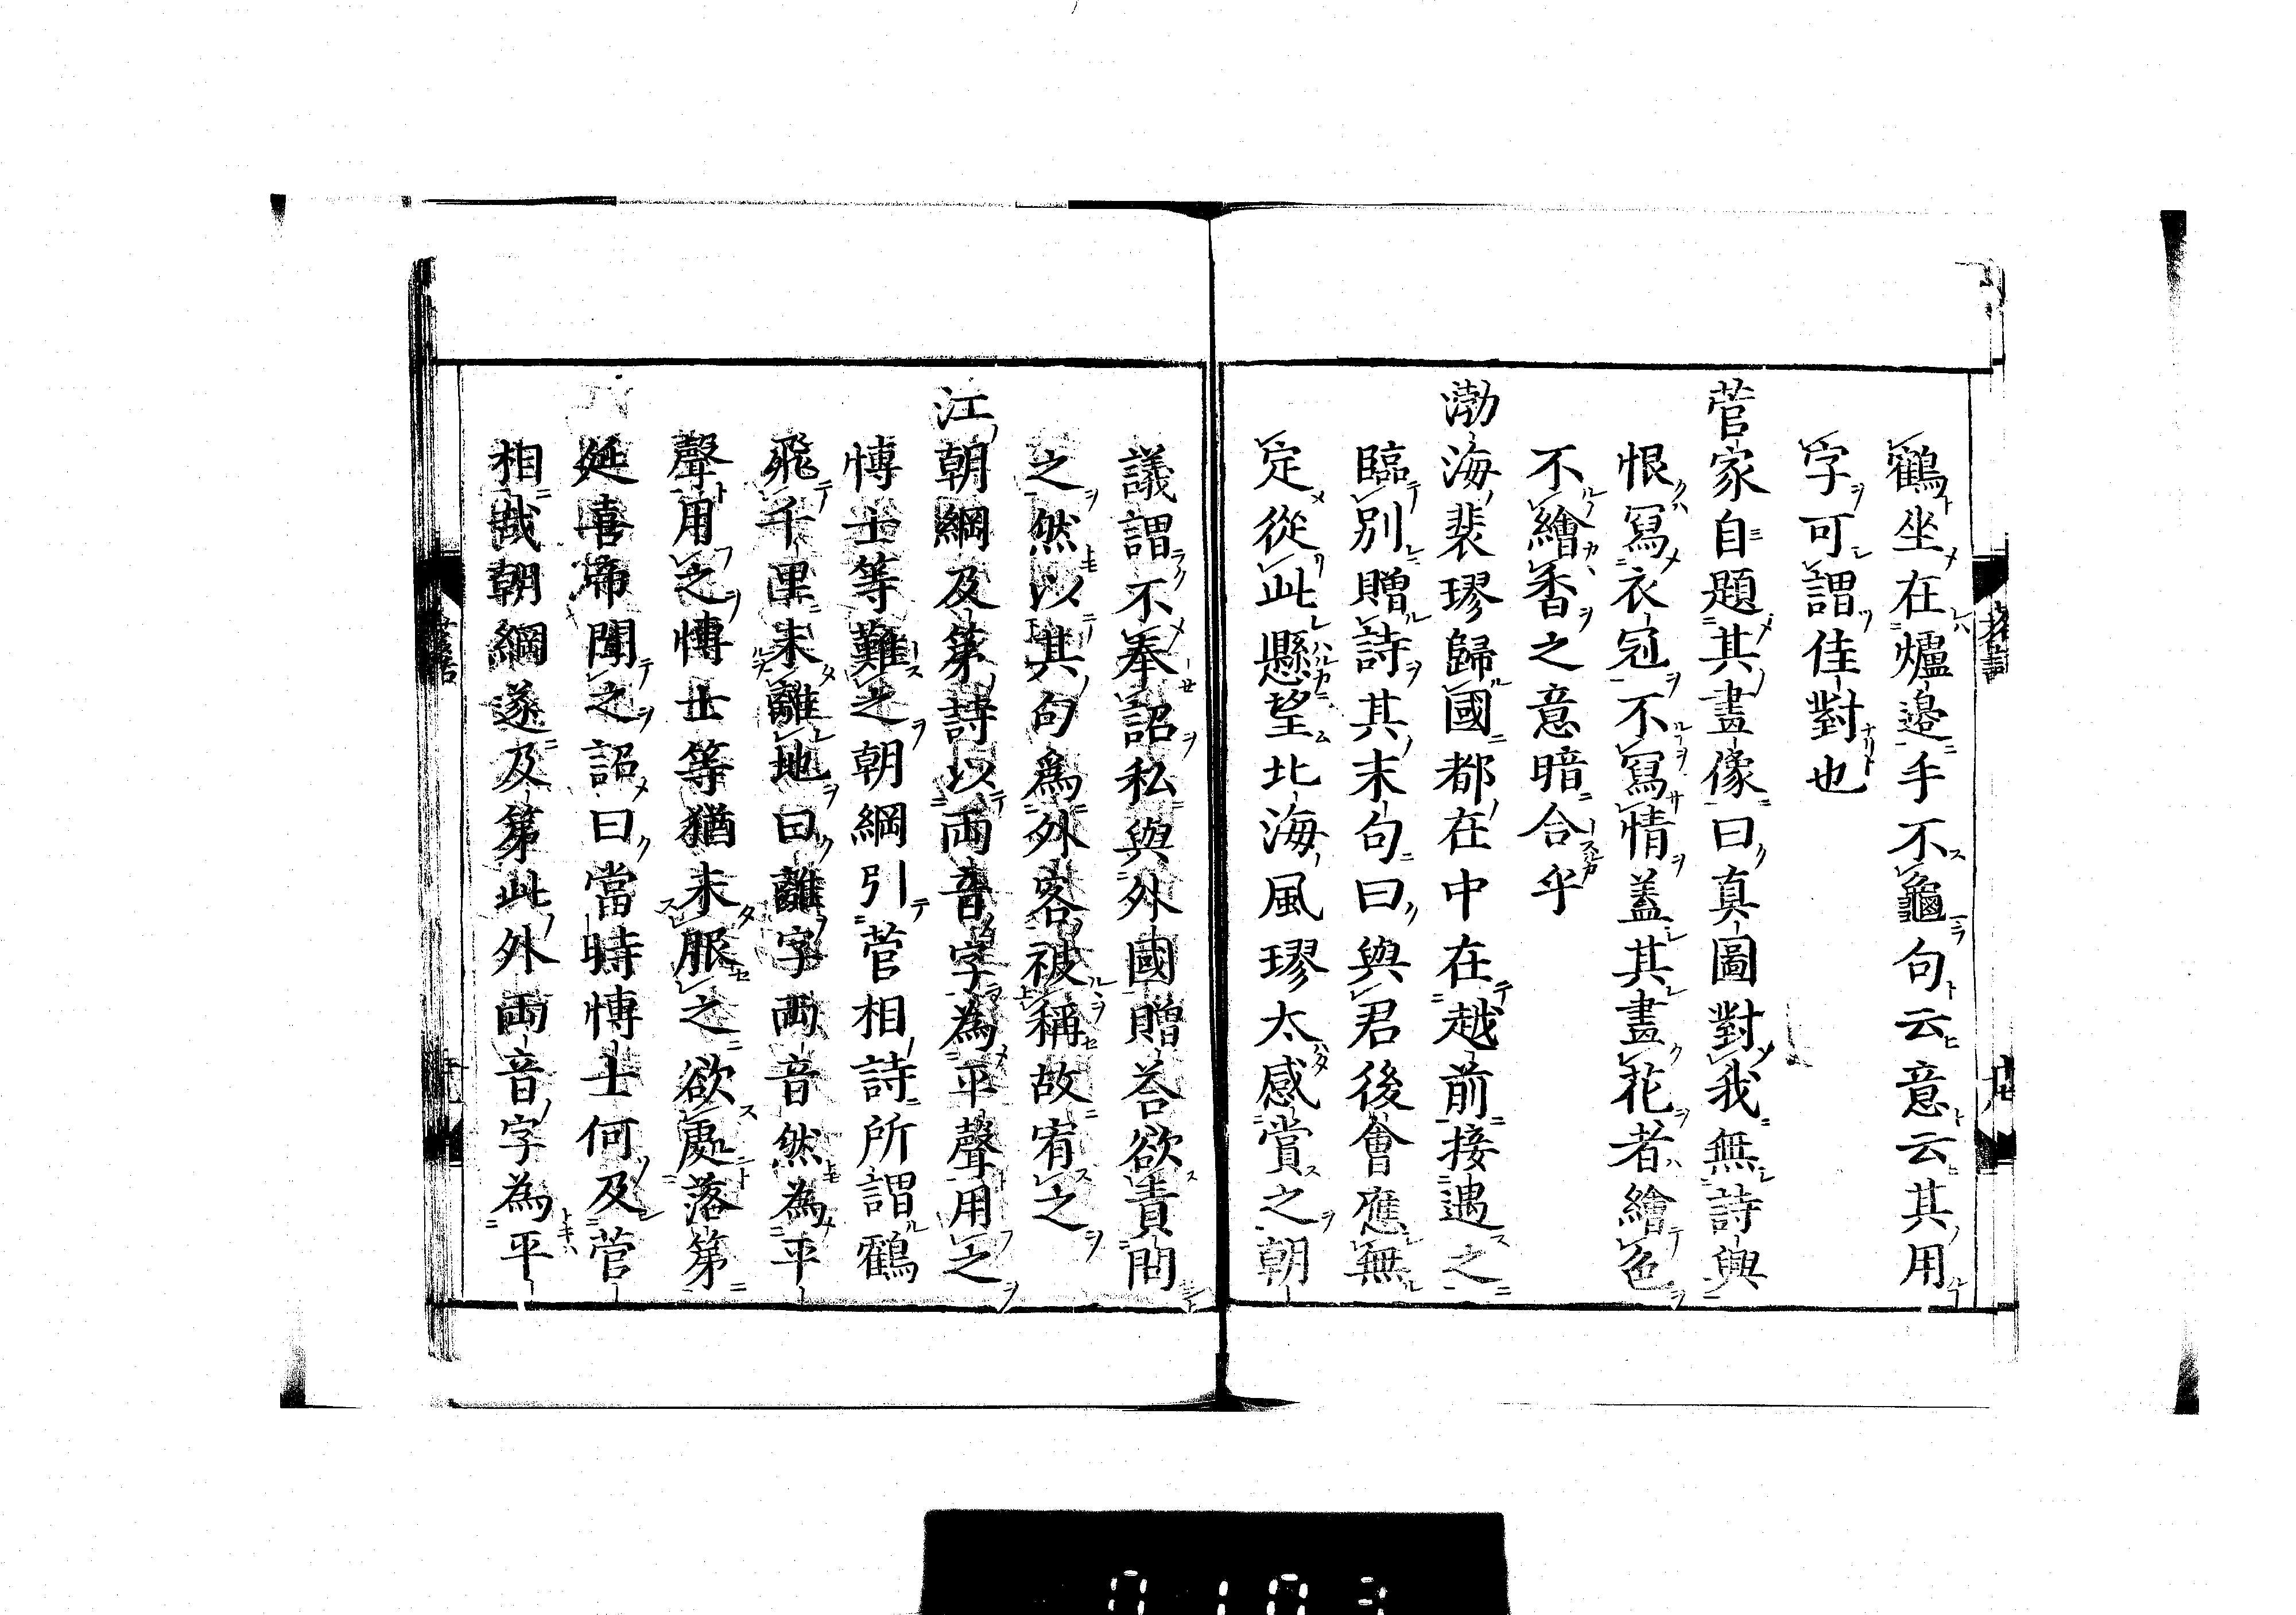 鶴坐在爐邊手不龜句云意云其用
字可謂佳對也
菅家自題其畫像曰真圖對我無詩興
恨寫衣冠不寫情蓋其畫花者繪色
不繪香之意暗合乎
渤海裴璆歸國都在中在越前接遇之
臨別贈詩其末句曰與君後會應無
定從此懸望北海風璆太感賞之朝
議謂不奉詔私與外國贈答欲責問
之然以其句爲外客被稱故宥之
江朝綱及第詩以兩音字為平聲用之
博士等難之朝綱引菅相詩所謂鶴
飛千里未離地曰離字兩音然為平
聲用之博士等猶未服之欲處落第
延喜帝聞之詔曰當時博士何及菅
相哉朝綱遂及第此外兩音字為平